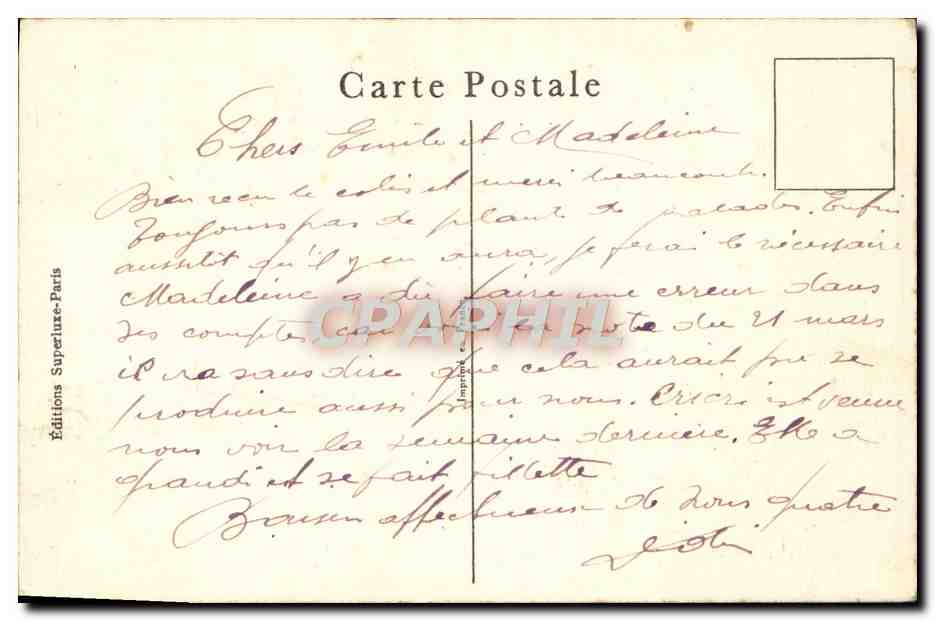 Carte Postale
Chers Emile et Madeleine
Bien reçu le colis et merci beaucoup.
Toujours pas de plant de salades. Enfin
aussitôt qu'il y en aura, je ferai le nécessaire
Madeleine a dû faire une erreur dans
ses comptes, car voici la note du 21 mars
il va sans dire que cela aurait pu se
produire aussi pour nous. Cricri est venue
nous voir la semaine dernière. Elle a
grandi et se fait fillette
Baisers affectueux de nous quatre
Éditions Superluxe-Paris
Imprimé en
CPAPHIL